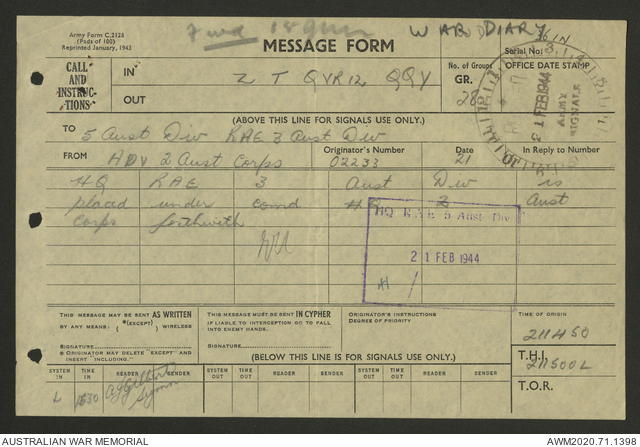 Army Form C.2128
(Pads of 100)
Reprinted January, 1943
Fwd
WAR DIARY
MESSAGE FORM
Serial No.
CALL
AND
INSTRUC-
TIONS
IN
Z T QVR12 QQY
No. of Groups
GR.
28
OFFICE DATE STAMP
21 FEB 1944
ARMY
SIGNALS
OUT
(ABOVE THIS LINE FOR SIGNALS USE ONLY.)
TO
5 Aust Div RAE 3 Aust Div
FROM
ADV 2 Aust Corps
Originator's Number
02233
Date
21
In Reply to Number
HQ RAE 3 Aust Div is
placed under comd HQ 2 Aust
Corps forthwith
HQ R.A.E. 5 Aust. Div
21 FEB 1944
THIS MESSAGE MAY BE SENT AS WRITTEN
BY ANY MEANS. (*(EXCEPT) ) WIRELESS
SIGNATURE
* ORIGINATOR MAY DELETE "EXCEPT" AND
INSERT "INCLUDING."
THIS MESSAGE MUST BE SENT IN CYPHER
IF LIABLE TO INTERCEPTION OR TO FALL
INTO ENEMY HANDS.
SIGNATURE
ORIGINATOR'S INSTRUCTIONS
DEGREE OF PRIORITY
TIME OF ORIGIN
211450
(BELOW THIS LINE IS FOR SIGNALS USE ONLY.)
T.H.I.
211500L
T.O.R.
SYSTEM IN TIME IN READER SENDER SYSTEM OUT TIME OUT READER SENDER SYSTEM OUT TIME OUT READER SENDER
L 1630
AUSTRALIAN WAR MEMORIAL
AWM2020.71.1398